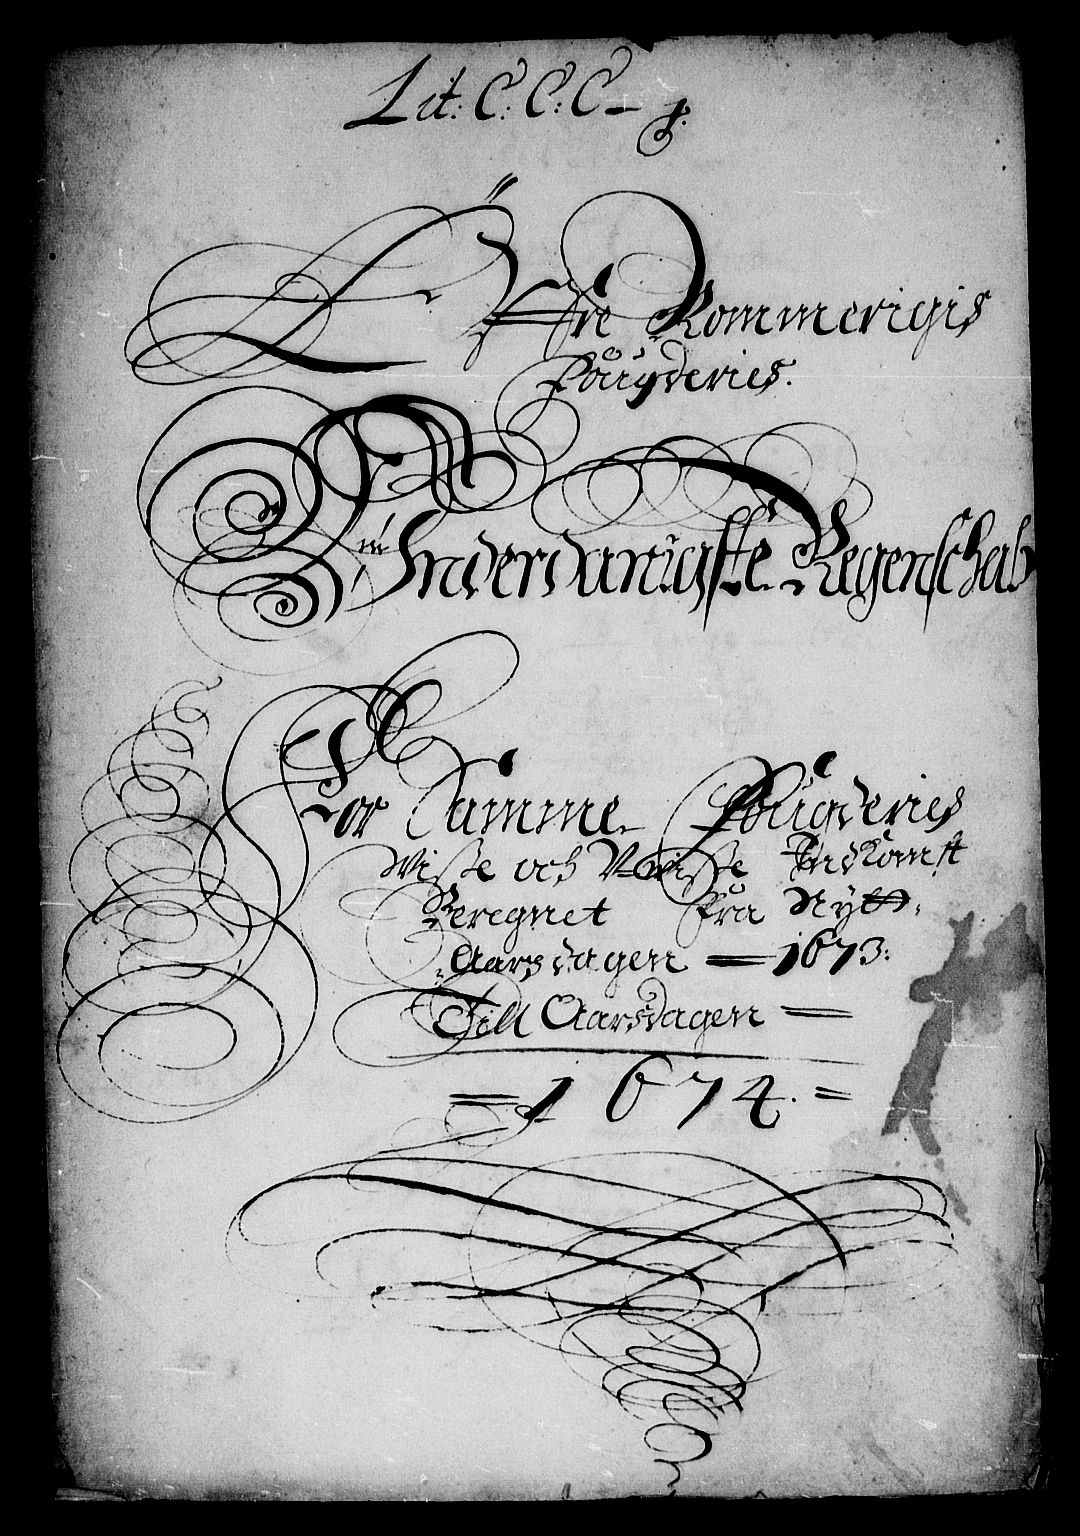 Lit: C: C: C -
Øfre Rommerigis
Fougderies.
Underdanigste Regenschab
For Samme Fougderies
Wisse och Uwisse Indkomst
Beregnet fra Nytt-
Aarsdagen = 1673:
Till Aarsdagen =
= 1674. =